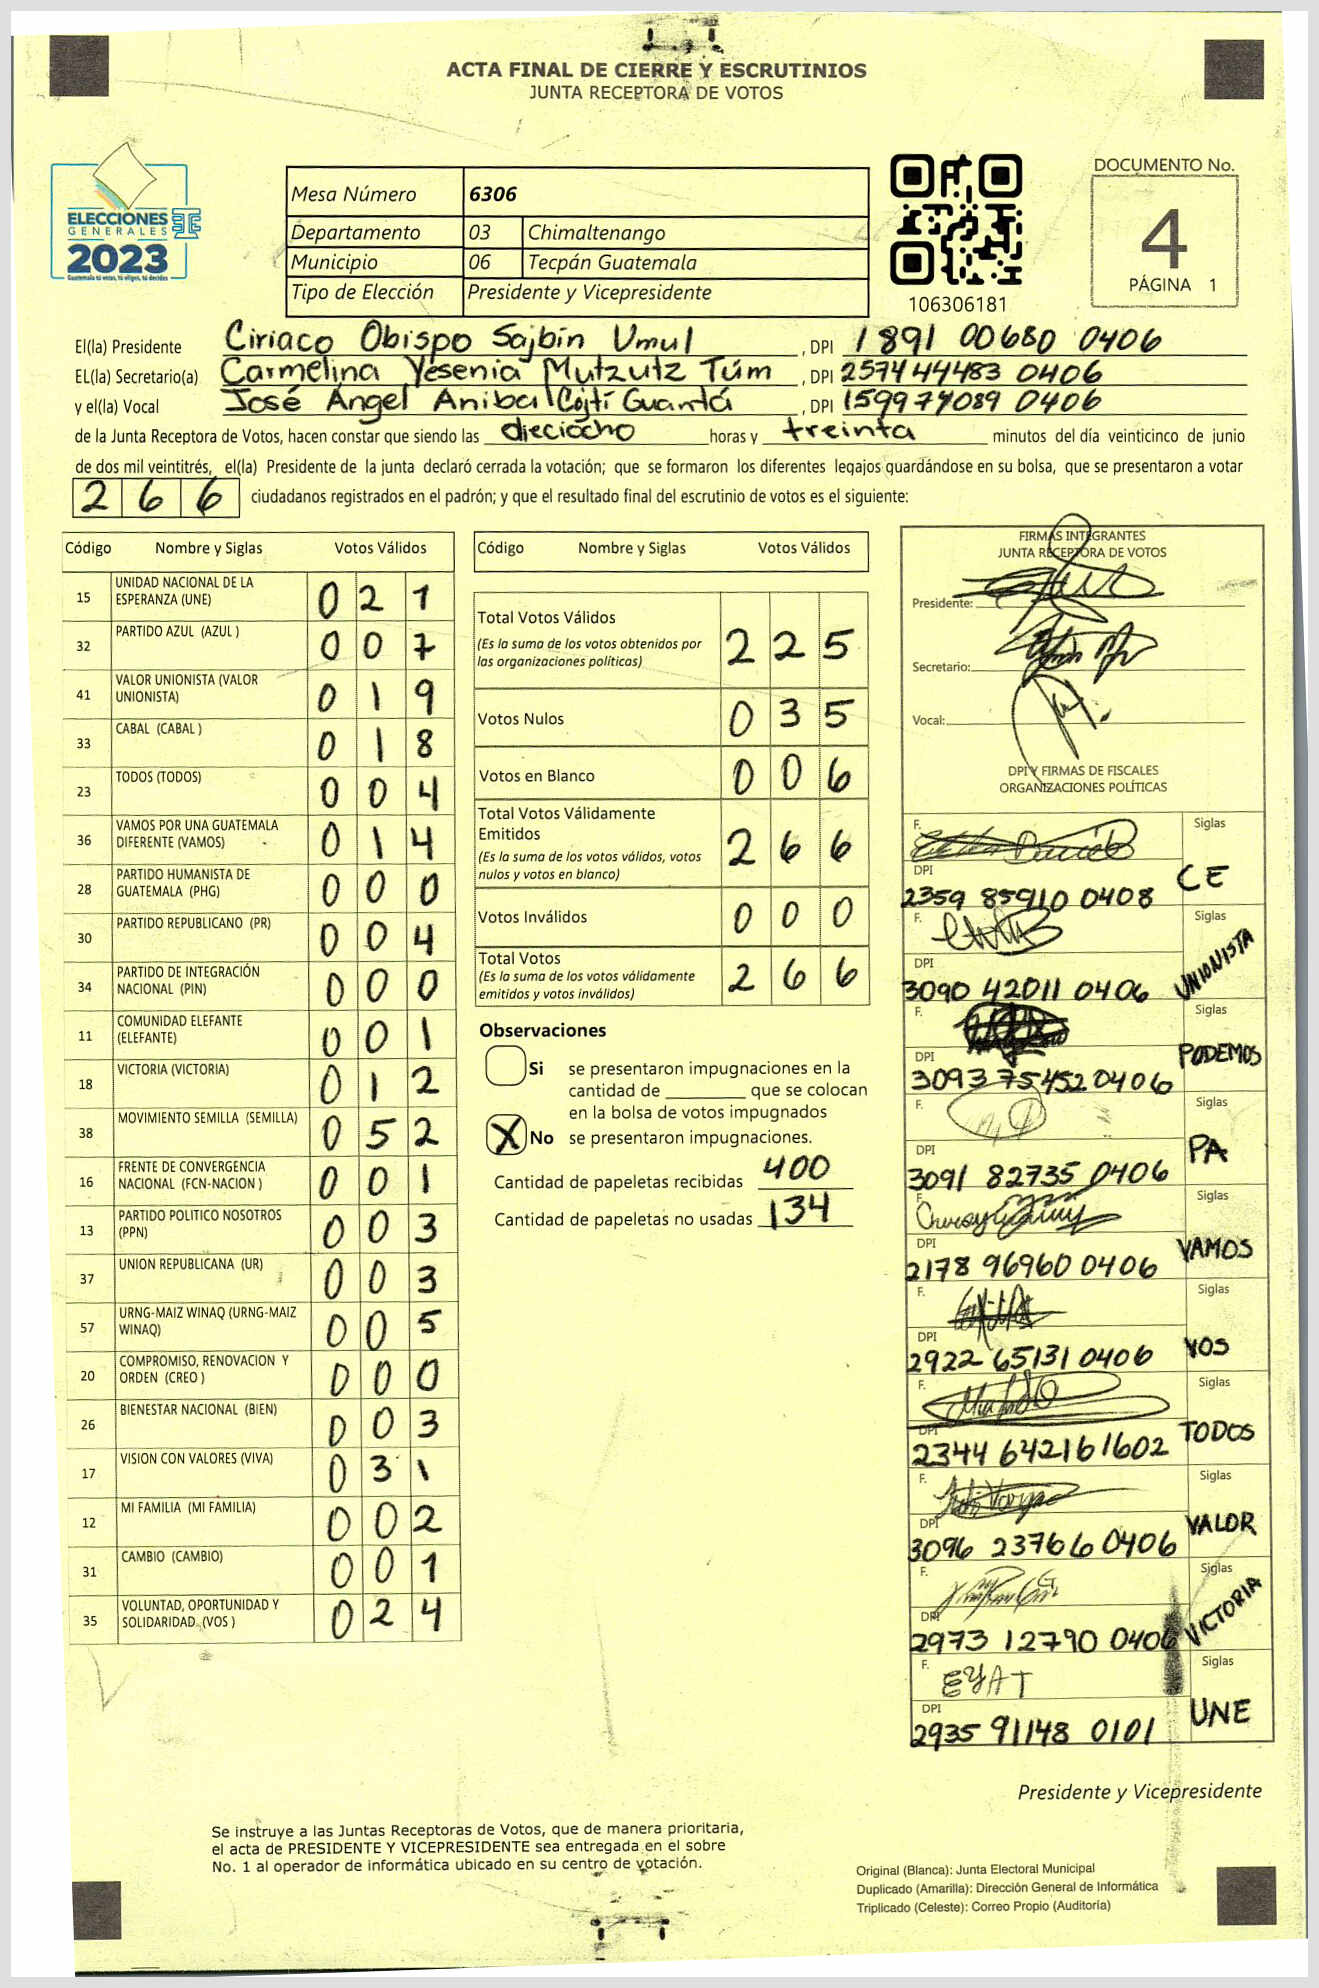 ACTA FINAL DE CIERRE Y ESCRUTINIOS
JUNTA RECEPTORA DE VOTOS
ELECCIONES
GENERALES
2023
Guatemala tú votas, tú eliges, tú decides
Mesa Número 6306
Departamento 03 Chimaltenango
Municipio 06 Tecpán Guatemala
Tipo de Elección Presidente y Vicepresidente
106306181
DOCUMENTO No.
4
PÁGINA 1
El(la) Presidente Ciriaco Obispo Sajbín Umul, DPI 1891 00680 0406
EL(la) Secretario(a) Carmelina Yesenia Mutzutz Túm, DPI 257444483 0406
y el(la) Vocal José Angel Anibal Cojtí Guantá, DPI 159974089 0406
de la Junta Receptora de Votos, hacen constar que siendo las dieciocho horas y treinta minutos del día veinticinco de junio
de dos mil veintitrés, el(la) Presidente de la junta declaró cerrada la votación; que se formaron los diferentes legajos guardándose en su bolsa, que se presentaron a votar
266 ciudadanos registrados en el padrón; y que el resultado final del escrutinio de votos es el siguiente:
Código Nombre y Siglas Votos Válidos
15 UNIDAD NACIONAL DE LA ESPERANZA (UNE) 021
32 PARTIDO AZUL (AZUL ) 007
41 VALOR UNIONISTA (VALOR UNIONISTA) 019
33 CABAL (CABAL ) 018
23 TODOS (TODOS) 004
36 VAMOS POR UNA GUATEMALA DIFERENTE (VAMOS) 014
28 PARTIDO HUMANISTA DE GUATEMALA (PHG) 000
30 PARTIDO REPUBLICANO (PR) 004
34 PARTIDO DE INTEGRACIÓN NACIONAL (PIN) 000
11 COMUNIDAD ELEFANTE (ELEFANTE) 001
18 VICTORIA (VICTORIA) 012
38 MOVIMIENTO SEMILLA (SEMILLA) 052
16 FRENTE DE CONVERGENCIA NACIONAL (FCN-NACION ) 001
13 PARTIDO POLITICO NOSOTROS (PPN) 003
37 UNION REPUBLICANA (UR) 003
57 URNG-MAIZ WINAQ (URNG-MAIZ WINAQ) 005
20 COMPROMISO, RENOVACION Y ORDEN (CREO ) 000
26 BIENESTAR NACIONAL (BIEN) 003
17 VISION CON VALORES (VIVA) 031
12 MI FAMILIA (MI FAMILIA) 002
31 CAMBIO (CAMBIO) 001
35 VOLUNTAD, OPORTUNIDAD Y SOLIDARIDAD (VOS ) 024
Código Nombre y Siglas Votos Válidos
Total Votos Válidos 225
(Es la suma de los votos obtenidos por
las organizaciones políticas)
Votos Nulos 035
Votos en Blanco 006
Total Votos Válidamente
Emitidos 266
(Es la suma de los votos válidos, votos
nulos y votos en blanco)
Votos Inválidos 000
Total Votos 266
(Es la suma de los votos válidamente
emitidos y votos inválidos)
Observaciones
Si se presentaron impugnaciones en la
cantidad de ________ que se colocan
en la bolsa de votos impugnados
X No se presentaron impugnaciones.
Cantidad de papeletas recibidas 400
Cantidad de papeletas no usadas 134
FIRMAS INTEGRANTES
JUNTA RECEPTORA DE VOTOS
Presidente:
Secretario:
Vocal:
DPI Y FIRMAS DE FISCALES
ORGANIZACIONES POLÍTICAS
F. Siglas
DPI CE
2359 85910 0408
F. Siglas
DPI UNIONISTA
3090 42011 0406
F. Siglas
DPI PODEMOS
3093 75452 0406
F. Siglas
DPI PA
3091 82735 0406
F. Siglas
DPI VAMOS
2178 96960 0406
F. Siglas
DPI VOS
2922 65131 0406
F. Siglas
DPI TODOS
2344 64216 1602
F. Siglas
DPI VALOR
3096 23766 0406
F. Siglas
DPI VICTORIA
2973 12790 0406
F. EYAT Siglas
DPI UNE
2935 91148 0101
Presidente y Vicepresidente
Se instruye a las Juntas Receptoras de Votos, que de manera prioritaria,
el acta de PRESIDENTE Y VICEPRESIDENTE sea entregada en el sobre
No. 1 al operador de informática ubicado en su centro de votación.
Original (Blanca): Junta Electoral Municipal
Duplicado (Amarilla): Dirección General de Informática
Triplicado (Celeste): Correo Propio (Auditoría)